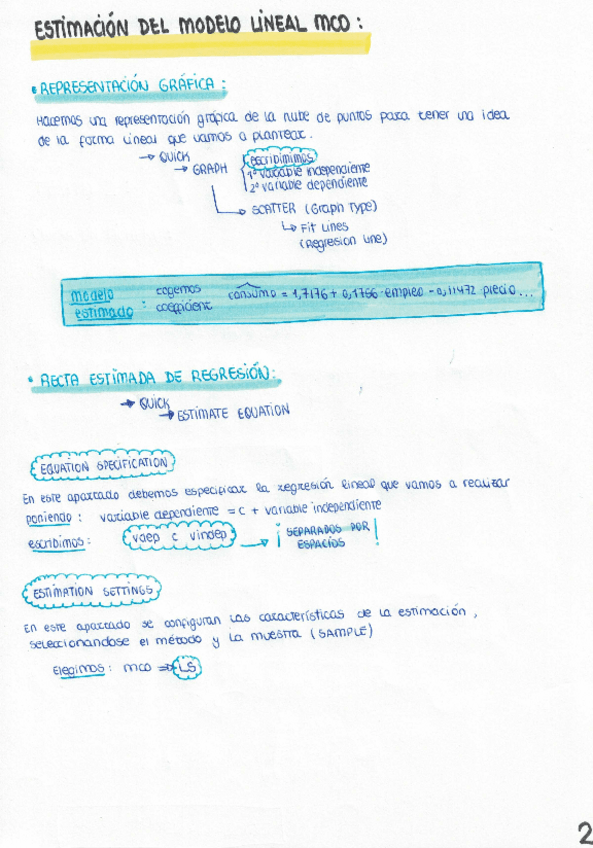 ESTIMACIÓN DEL MODELO LINEAL MCO:
• REPRESENTACIÓN GRÁFICA:
Hacemos una representación gráfica de la nube de puntos para tener una idea
de la forma lineal que vamos a plantear.
→ QUICK
→ GRAPH
escribimimos
1º variable independiente
2º variable dependiente
SCATTER (Graph Type)
Fit Lines
(Regresion Line)
modelo estimado: cogemos coefficient consumo = 1,7176 + 0,1766 empleo - 0,11472 precio...
• RECTA ESTIMADA DE REGRESIÓN:
→ QUICK
→ ESTIMATE EQUATION
EQUATION SPECIFICATION
En este apartado debemos especificar la regresión lineal que vamos a realizar
poniendo: variable dependiente = c + variable independiente
escribimos: vdep c vindep → ¡SEPARADOS POR ESPACIOS!
ESTIMATION SETTINGS
En este apartado se configuran las características de la estimación,
seleccionandose el método y la muestra (SAMPLE)
Elegimos: MCO ⇒ LS
2